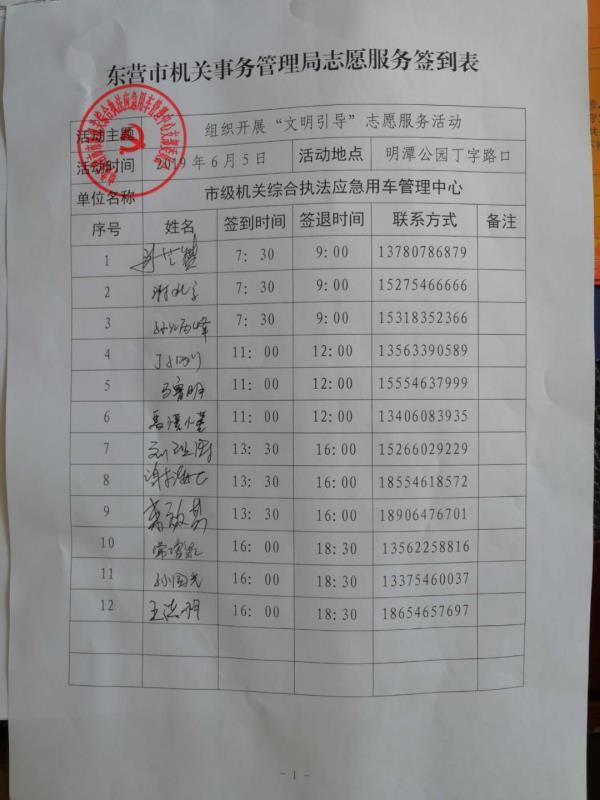 东营市机关事务管理局志愿服务签到表
活动主题 组织开展“文明引导”志愿服务活动
活动时间 2019年6月5日 活动地点 明潭公园丁字路口
单位名称 市级机关综合执法应急用车管理中心
序号 姓名 签到时间 签退时间 联系方式 备注
1 7:30 9:00 13780786879
2 7:30 9:00 15275466666
3 7:30 9:00 15318352366
4 11:00 12:00 13563390589
5 马鲁明 11:00 12:00 15554637999
6 11:00 12:00 13406083935
7 13:30 16:00 15266029229
8 13:30 16:00 18554618572
9 13:30 16:00 18906476701
10 16:00 18:30 13562258816
11 孙国光 16:00 18:30 13375460037
12 王浩明 16:00 18:30 18654657697
- 1 -